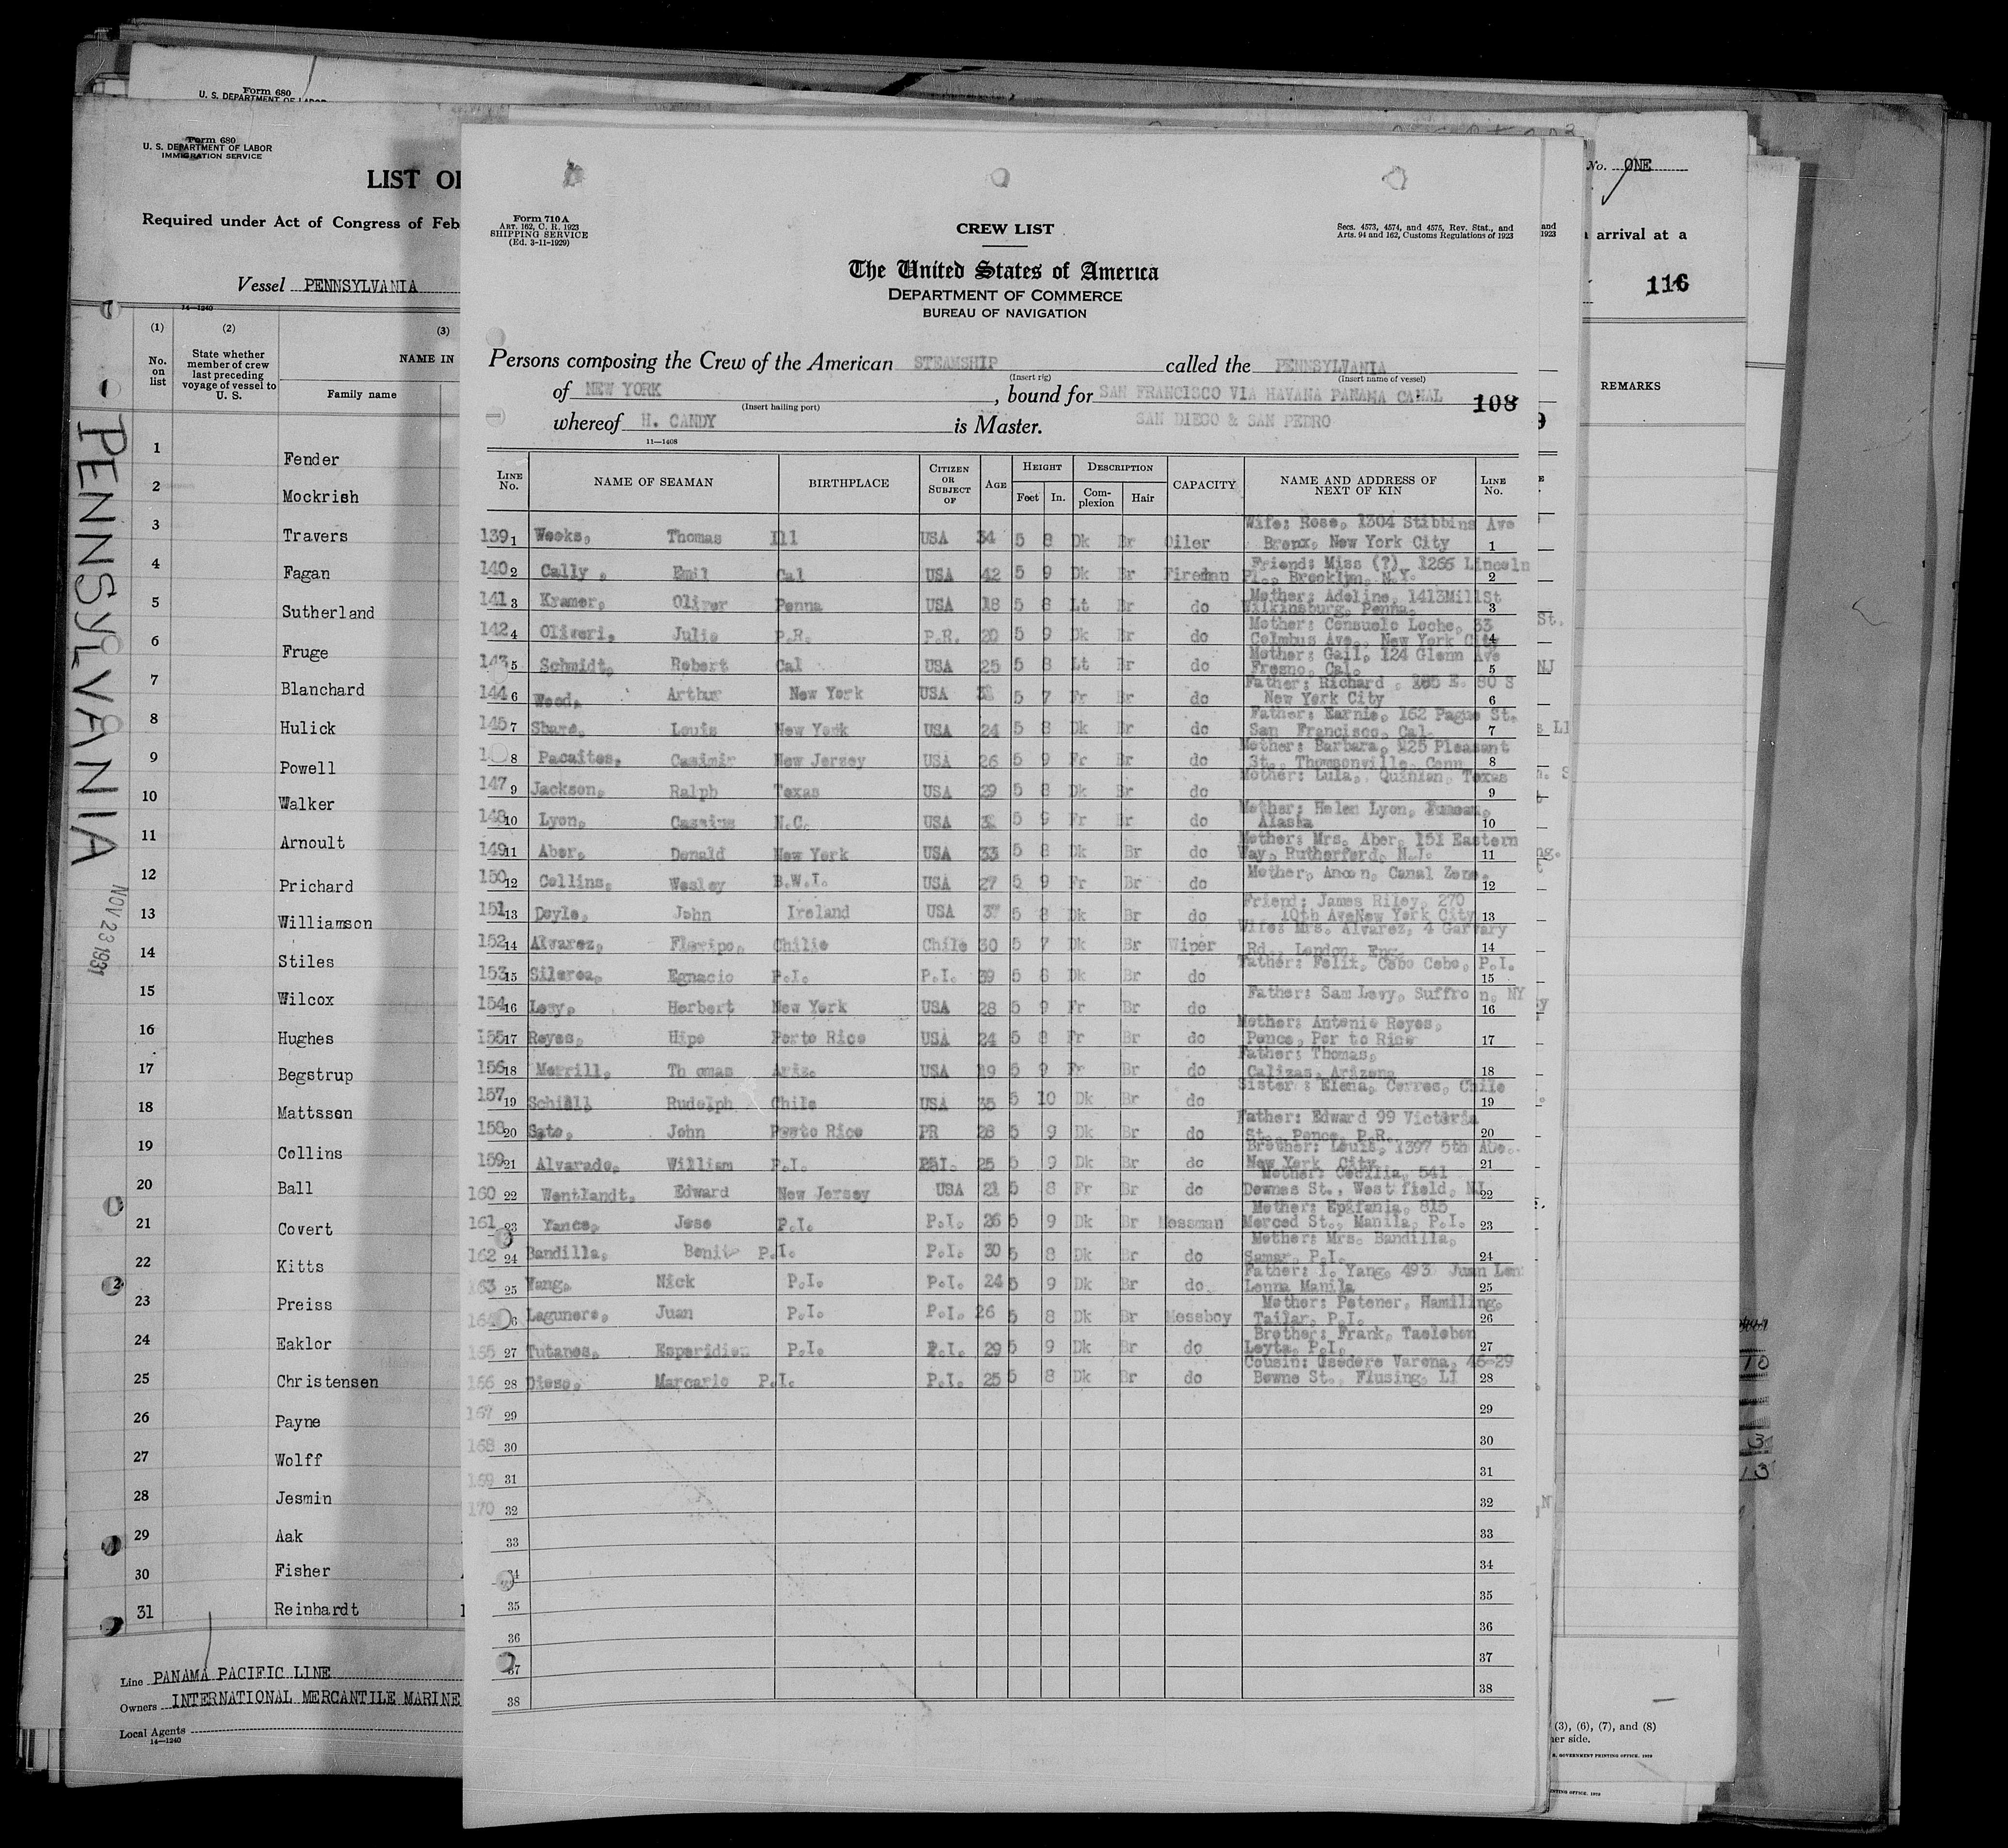 Form 680
U. S. DEPARTMENT OF LABOR
Form 680
U. S. DEPARTMENT OF LABOR
IMMIGRATION SERVICE
LIST OF
Required under Act of Congress of Feb
Vessel PENNSYLVANIA
14—1240
(1) (2) (3)
No. on list
State whether member of crew last preceding voyage of vessel to U. S.
NAME IN
Family name
1 Fender
2 Mockrish
3 Travers
4 Fagan
5 Sutherland
6 Fruge
7 Blanchard
8 Hulick
9 Powell
10 Walker
11 Arnoult
12 Prichard
13 Williamson
14 Stiles
15 Wilcox
16 Hughes
17 Begstrup
18 Mattssen
19 Collins
20 Ball
21 Covert
22 Kitts
23 Preiss
24 Eaklor
25 Christensen
26 Payne
27 Wolff
28 Jesmin
29 Aak
30 Fisher
31 Reinhardt
Line PANAMA PACIFIC LINE
Owners INTERNATIONAL MERCANTILE MARINE
Local Agents
14—1240
PENNSYLVANIA
NOV 23 1931
Form 710 A
ART. 162, C. R. 1923
SHIPPING SERVICE
(Ed. 3-11-1929)
CREW LIST
Secs. 4573, 4574, and 4575, Rev. Stat., and
Arts. 94 and 162, Customs Regulations of 1923
The United States of America
DEPARTMENT OF COMMERCE
BUREAU OF NAVIGATION
Persons composing the Crew of the American STEAMSHIP called the PENNSYLVANIA
(Insert rig) (Insert name of vessel)
of NEW YORK, bound for SAN FRANCISCO VIA HAVANA PANAMA CANAL 108
(Insert hailing port)
whereof H. CANDY is Master. SAN DIEGO & SAN PEDRO
11—1408
LINE No. NAME OF SEAMAN BIRTHPLACE CITIZEN OR SUBJECT OF AGE HEIGHT Feet In. DESCRIPTION Complexion Hair CAPACITY NAME AND ADDRESS OF NEXT OF KIN LINE No.
Wife: Rose, 1304 Stibbins Ave
139 1 Weeks, Thomas Ill USA 34 5 8 Dk Br Oiler Bronx, New York City 1
Friend: Miss (?) 1266 Lincoln
140 2 Cally, Emil Cal USA 42 5 9 Dk Br Fireman Pl., Brooklyn, N.Y. 2
Mother: Adeline, 1413MillSt
141 3 Kramer, Oliver Penna USA 18 5 8 Lt Br do Wilkinsburg, Penna. 3
Mother: Consuelo Leche, 33
142 4 Oliveri, Julio P.R. P.R. 20 5 9 Dk Br do Colmbus Ave., New York City 4
Mother: Gail, 124 Glenn Ave
143 5 Schmidt, Robert Cal USA 25 5 8 Lt Br do Fresno, Cal. 5
Father: Richard, E. 80 S
144 6 Wood, Arthur New York USA 5 7 Fr Br do New York City 6
Father: Earnie, 162 Pague St.
145 7 Share, Louis New York USA 24 5 8 Dk Br do San Francisco, Cal. 7
Mother: Barbara, 125 Pleasant
8 Pacaites, Casimir New Jerzey USA 26 5 9 Fr Br do St., Thomsonville, Conn 8
Mother: Lula, Quinlan, Texas
147 9 Jackson, Ralph Texas USA 29 5 8 Dk Br do 9
Mother: Helen Lyon,
148 10 Lyon, Cassius N.C. USA 5 9 Fr Br do Alaska 10
Mother: Mrs. Aber, 151 Eastern
149 11 Aber, Donald New York USA 33 5 8 Dk Br do Way, Rutherford, N.J. 11
Mother, Ancon, Canal Zone.
150 12 Collins, Wesley B.W.I. USA 27 5 9 Fr Br do 12
Friend: James Riley, 270
151 13 Doyle, John Ireland USA 37 5 8 Dk Br do 10th AveNew York City 13
Wife: Mrs. Alvarez, 4 Garvary
152 14 Alvarez, Floripo, Chilie Chile 30 5 7 Dk Br Wiper Rd., London, Eng. 14
Father: Felix, Cebo Cebo, P.I.
153 15 Silerea, Egnacio P.I. P.I. 39 5 8 Dk Br do 15
Father: Sam Levy, Suffron, NY
154 16 Levy, Herbert New York USA 28 5 9 Fr Br do 16
Mother: Antonio Reyes,
155 17 Reyes, Hipo Porto Rico USA 24 5 8 Fr Br do Ponce, Por to Rico 17
Father: Thomas,
156 18 Merrill, Th omas Ariz. USA 19 5 9 Fr Br do Calizas, Arizona 18
Sister: Elena, Cerros, Chile
157 19 Schiell Rudolph Chile USA 35 5 10 Dk Br do 19
Father: Edward 99 Victoria
158 20 Soto, John Porto Rico PR 28 5 9 Dk Br do St., Ponce, P.R. 20
Brother: Louis, 1397 5th Abe.
159 21 Alvarado, William P.I. P.I. 25 5 9 Dk Br do New York City 21
Mother: Cecilia, 541
160 22 Wentlandt, Edward New Jersey USA 21 5 8 Fr Br do Downes St., West field, NJ 22
Mother: Epifania, 815
161 23 Yance, Jose P.I. P.I. 26 5 9 Dk Br Messman Merced St., Manila, P.I. 23
Mother: Mrs. Bandilla,
162 24 Bandilla, Benito P.I. P.I. 30 5 8 Dk Br do Samar, P.I. 24
Father: I. Yang, 493 Juan Len
163 25 Yang, Nick P.I. P.I. 24 5 9 Dk Br do. Lonna Manila 25
Mother: Petener, Hamiling,
164 6 Lagunero, Juan P.I. P.I. 26 5 8 Dk Br Messboy Tailar, P.I. 26
Brother: Frank, Taclobon
165 27 Tutanes, Esperidien P.I. P.I. 29 5 9 Dk Br do Leyte, P.I. 27
Cousin: Usedere Varona, 46-29
166 28 Diese, Marcario P.I. P.I. 25 5 8 Dk Br do Bowne St., Flusing, LI 28
167 29 29
168 30 30
169 31 31
170 32 32
33 33
34 34
35 35
36 36
37 37
38 38
and
1923
St.
NJ
No. ONE
arrival at a
116
REMARKS
(3), (6), (7), and (8)
er side.
GOVERNMENT PRINTING OFFICE